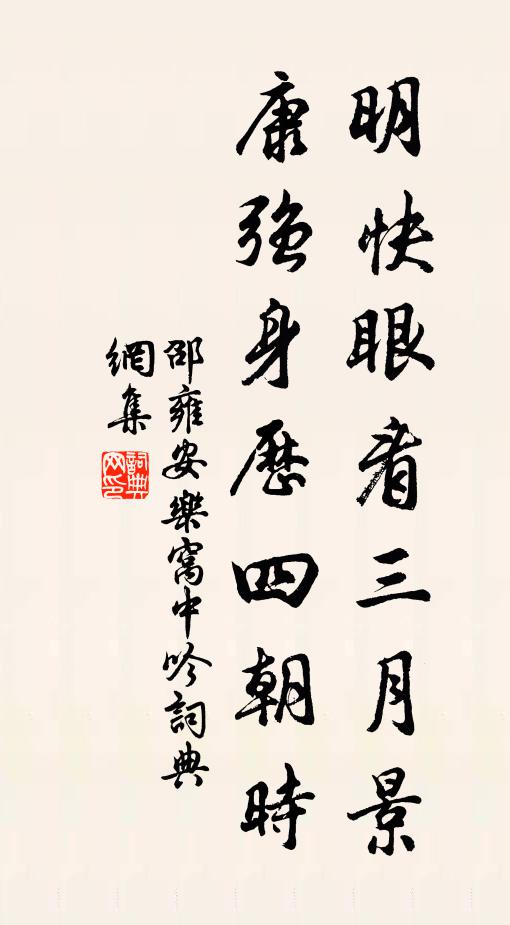 明快眼看三月景
康強身歷四朝時
邵雍安樂窩中吟詞典
網集
詞典
网印